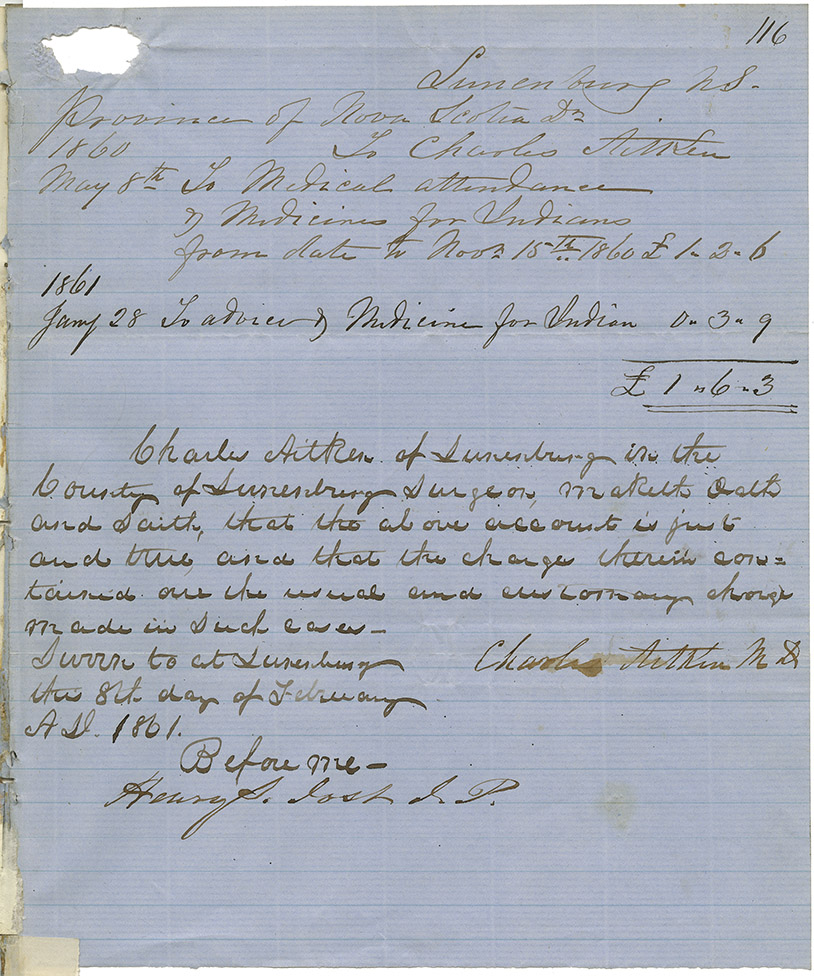 116
Lunenburg N.S.
Province of Nova Scotia Dr
1860 To Charles Aitken
May 8th To Medical attendance
& Medicines for Indians
from date to Novr 15th 1860 £ 1 " 2 " 6
1861
Jany 28 To advice & Medicine for Indian 0 " 3 " 9
£ 1 " 6 " 3
Charles Aitken of Lunenburg in the
County of Lunenburg Surgeon, maketh Oath
and Saith, that the above account is just
and true, and that the charge therein con=
tained are the usual and customary charge
made in Such cases _
Sworn to at Lunenburg
Charles Aitken M D
this 8th day of February
A D. 1861.
Before me _
Henry S. Jost J. P.